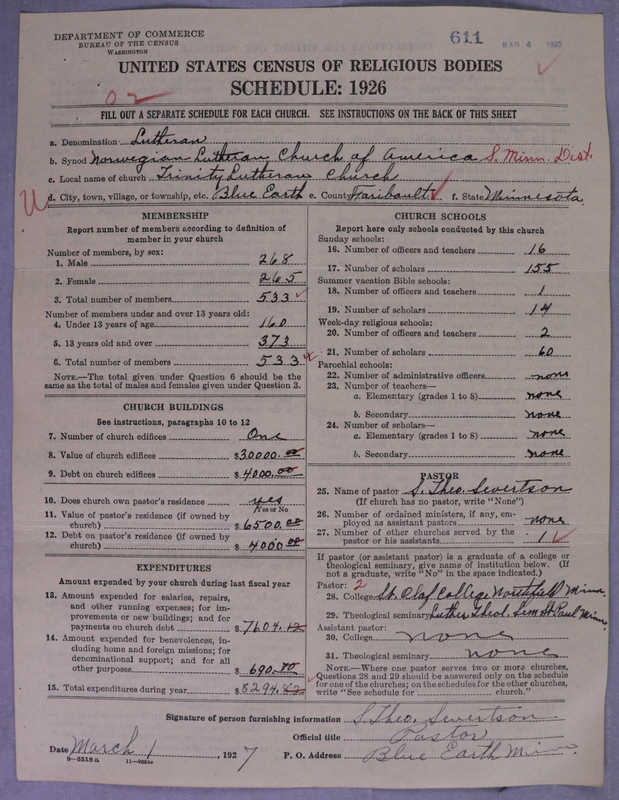 DEPARTMENT OF COMMERCE
BUREAU OF THE CENSUS
WASHINGTON
611
MAR 4 1927
UNITED STATES CENSUS OF RELIGIOUS BODIES
SCHEDULE: 1926
02
FILL OUT A SEPARATE SCHEDULE FOR EACH CHURCH. SEE INSTRUCTIONS ON THE BACK OF THIS SHEET
a. Denomination Lutheran
b. Synod Norwegian Lutheran Church of America S. Minn. Dist.
c. Local name of church Trinity Lutheran Church
d. City, town, village, or township, etc. Blue Earth e. County Faribault f. State Minnesota
MEMBERSHIP
Report number of members according to definition of
member in your church
Number of members, by sex:
1. Male 268
2. Female 265
3. Total number of members 533
Number of members under and over 13 years old:
4. Under 13 years of age 160
5. 13 years old and over 373
6. Total number of members 533
NOTE.—The total given under Question 6 should be
same as the total of males and females given under Question 3.
CHURCH BUILDINGS
See instructions, paragraphs 10 to 12
7. Number of church edifices One
8. Value of church edifices $30000.00
9. Debt on church edifices $4000.00
10. Does church own pastor's residence yes
Yes or No
11. Value of pastor's residence (if owned by
church) $6500.00
12. Debt on pastor's residence (if owned by
church) $4000.00
EXPENDITURES
Amount expended by your church during last fiscal year
13. Amount expended for salaries, repairs,
and other running expenses; for im-
provements or new buildings; and for
payments on church debt $7604.12
14. Amount expended for benevolences, in-
cluding home and foreign missions; for
denominational support; and for all
other purposes $690.70
15. Total expenditures during year $8294.82
CHURCH SCHOOLS
Report here only schools conducted by this church
Sunday schools:
16. Number of officers and teachers 16
17. Number of scholars 155
Summer vacation Bible schools:
18. Number of officers and teachers 1
19. Number of scholars 14
Week-day religious schools:
20. Number of officers and teachers 2
21. Number of scholars 60
Parochial schools:
22. Number of administrative officers none
23. Number of teachers—
a. Elementary (grades 1 to 8) none
b. Secondary none
24. Number of scholars—
a. Elementary (grades 1 to 8) none
b. Secondary none
PASTOR
25. Name of pastor S. Theo. Severtson
(If church has no pastor, write "None")
26. Number of ordained ministers, if any, em-
ployed as assistant pastors none
27. Number of other churches served by the
pastor or his assistants 1
If pastor (or assistant pastor) is a graduate of a college or
theological seminary, give name of institution below. (If
not a graduate, write "No" in the space indicated.)
Pastor: 2
28. College St. Olaf College Northfield Minn.
29. Theological seminary Luther Theol. Sem St Paul Minn.
Assistant pastor:
30. College none
31. Theological seminary none
NOTE.—Where one pastor serves two or more churches,
Questions 28 and 29 should be answered only on the schedule
for one of the churches; on the schedules for the other churches,
write "See schedule for church."
Signature of person furnishing information S. Theo. Severtson
Official title Pastor
Date March 1, 1927 P. O. Address Blue Earth Minn.
8—5518a